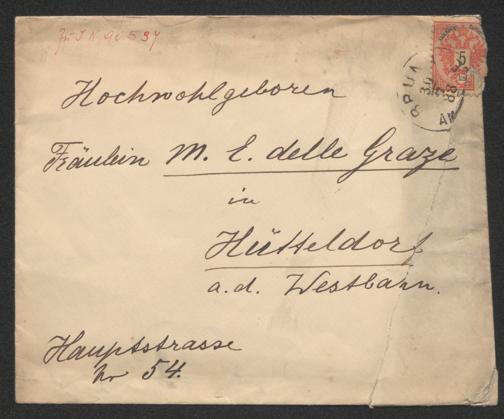 5
30
88
AM
Hochwohlgeboren
Fräulein M. E. delle Graze
in
Hütteldorf
a. d. Westbahn.
Hauptstrasse
Nr 54.